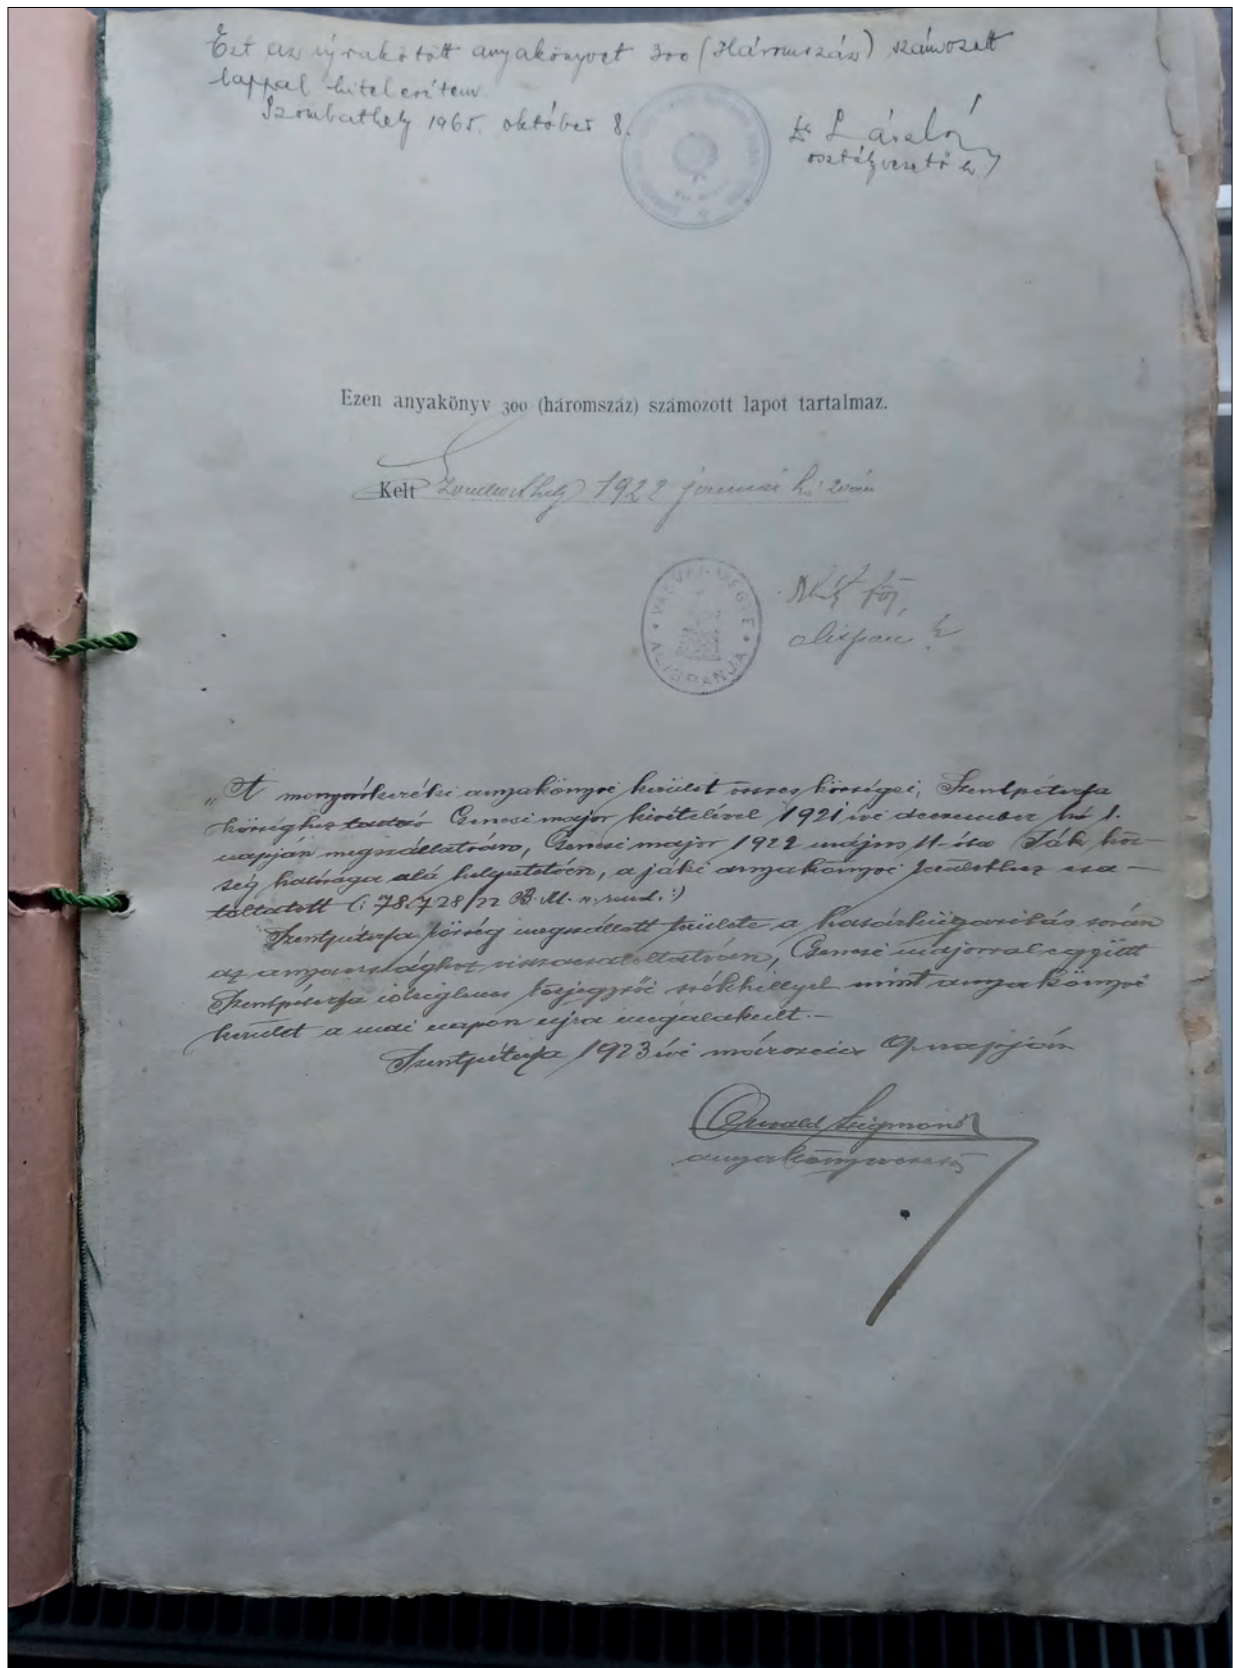 Ezt az újrakötött anyakönyvet 300 (Háromszáz) számozott
lappal hitelesítem.
Szombathely 1965. október 8.
dr László
osztályvezető h
Ezen anyakönyv 300 (háromszáz) számozott lapot tartalmaz.
Kelt Szombathely 1922 január hó 20án
VASVÁRMEGYE
ALISPÁNJA
alispán h
„A monyorókeréki anyakönyvi kerület összes községei, Szentpéterfa
községhez tartozó Gencsi major kivételével 1921 évi december hó 1.
napján megszállatván, Gencsi major 1922 május 11-óta Ják köz-
ség hatósága alá helyeztetvén, a jáki anyakönyvi kerülethez csa-
toltatott (: 78.728/22 B. M. n. rend. :)
Szentpéterfa község megszállott területe a határkiigazitás során
az anyaországhoz visszacsatoltatván, Gencsi majorral együtt
Szentpéterfa ideiglenes körjegyzői székhellyel mint anyakönyvi
kerület a mai napon újra megalakult.-
Szentpéterfa 1923 évi március 9 napján
Oswald Zsigmond
anyakönyvvezető